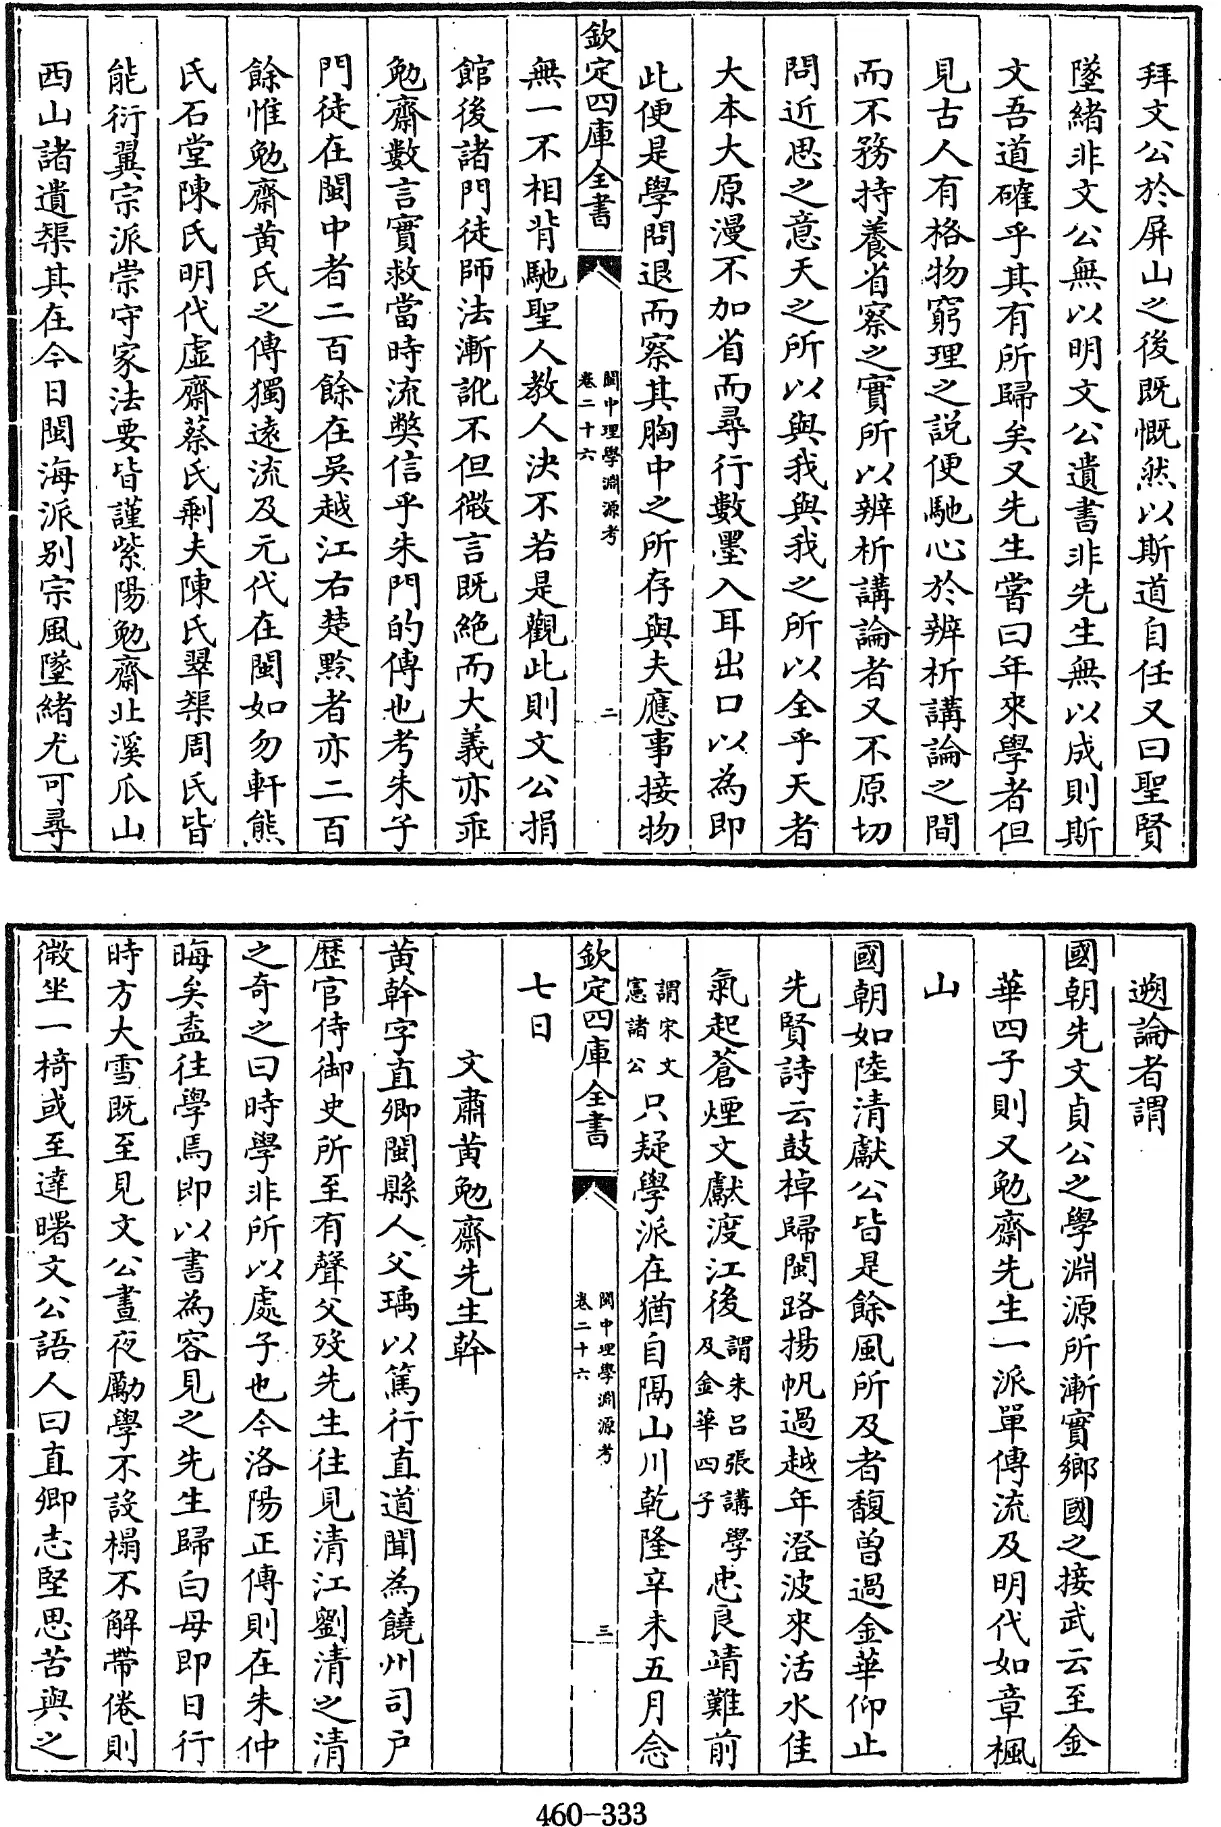 拜文公於屏山之後既慨然以斯道自任又曰聖賢
墜緒非文公無以明文公遺書非先生無以成則斯
文吾道確乎其有所歸矣又先生嘗曰年來學者但
見古人有格物窮理之説便馳心於辨析講論之間
而不務持養省察之實所以辨析講論者又不原切
問近思之意天之所以與我與我之所以全乎天者
大本大原漫不加省而尋行數墨入耳出口以為即
此便是學問退而察其胸中之所存與夫應事接物
欽定四庫全書
閩中理學淵源考
卷二十六
二
無一不相背馳聖人教人決不若是觀此則文公捐
館後諸門徒師法漸訛不但微言既絶而大義亦乖
勉齋數言實救當時流獘信乎朱門的傳也考朱子
門徒在閩中者二百餘在吳越江右楚黔者亦二百
餘惟勉齋黄氏之傳獨遠流及元代在閩如勿軒熊
氏石堂陳氏明代虛齋蔡氏剩夫陳氏翠渠周氏皆
能衍翼宗派崇守家法要皆謹紫陽勉齋北溪瓜山
西山諸遺榘其在今日閩海派别宗風墜緒尤可尋
遡論者謂
國朝先文貞公之學淵源所漸實鄉國之接武云至金
華四子則又勉齋先生一派單傳流及明代如章楓
山
國朝如陸清獻公皆是餘風所及者馥曾過金華仰止
先賢詩云鼓棹歸閩路揚帆過越年澄波來活水佳
氣起蒼煙文獻渡江後謂朱呂張講學及金華四子忠良靖難前
謂宋文憲諸公只疑學派在猶自隔山川乾隆辛未五月念
欽定四庫全書
閩中理學淵源考
卷二十六
三
七日
文肅黄勉齋先生幹
黄幹字直卿閩縣人父瑀以篤行直道聞為饒州司户
歴官侍御史所至有聲父歿先生往見清江劉清之清
之奇之曰時學非所以處子也今洛陽正傳則在朱仲
晦矣盍往學焉即以書為容見之先生歸白母即日行
時方大雪既至見文公晝夜勵學不設榻不解帶倦則
微坐一椅或至達曙文公語人曰直卿志堅思苦與之
460-333